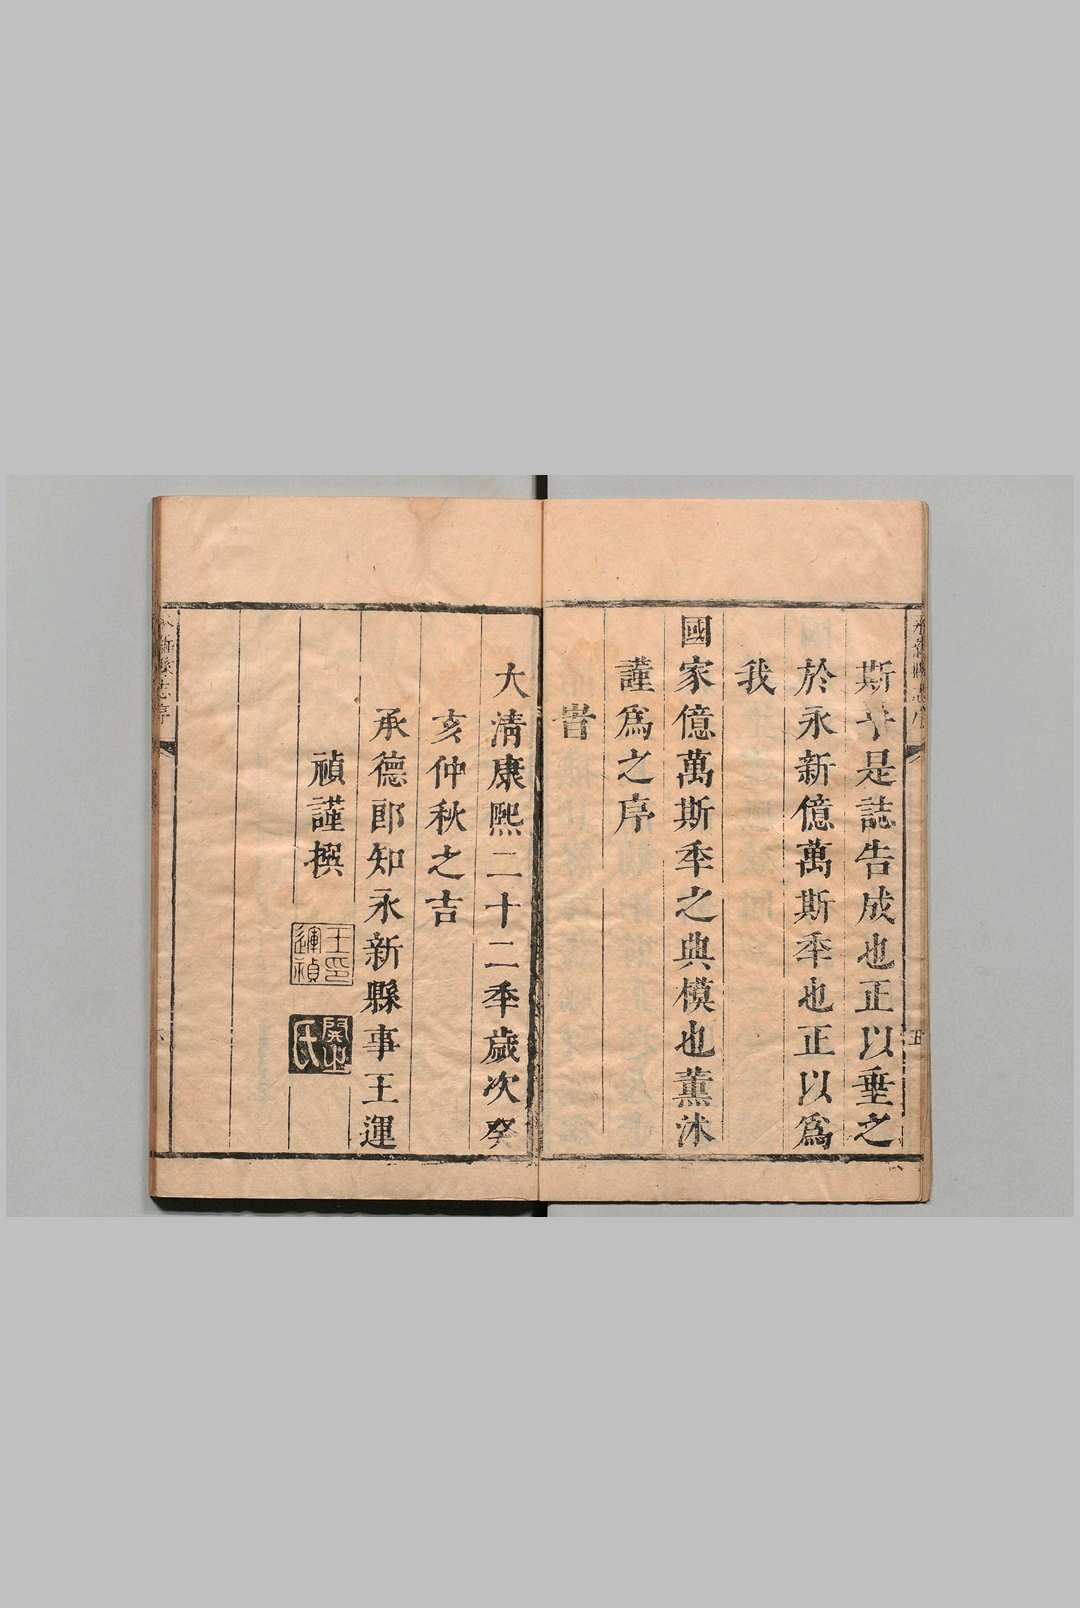 斯乎是誌告成也正以垂之
於永新億萬斯秊也正以爲
我
國家億萬斯秊之典模也薰沐
謹爲之序
旹
大清康熙二十二秊歲次癸
亥仲秋之吉
承德郎知永新縣事王運
禎謹撰
王印運禎
關中氏
永新縣志序
五
永新縣志序